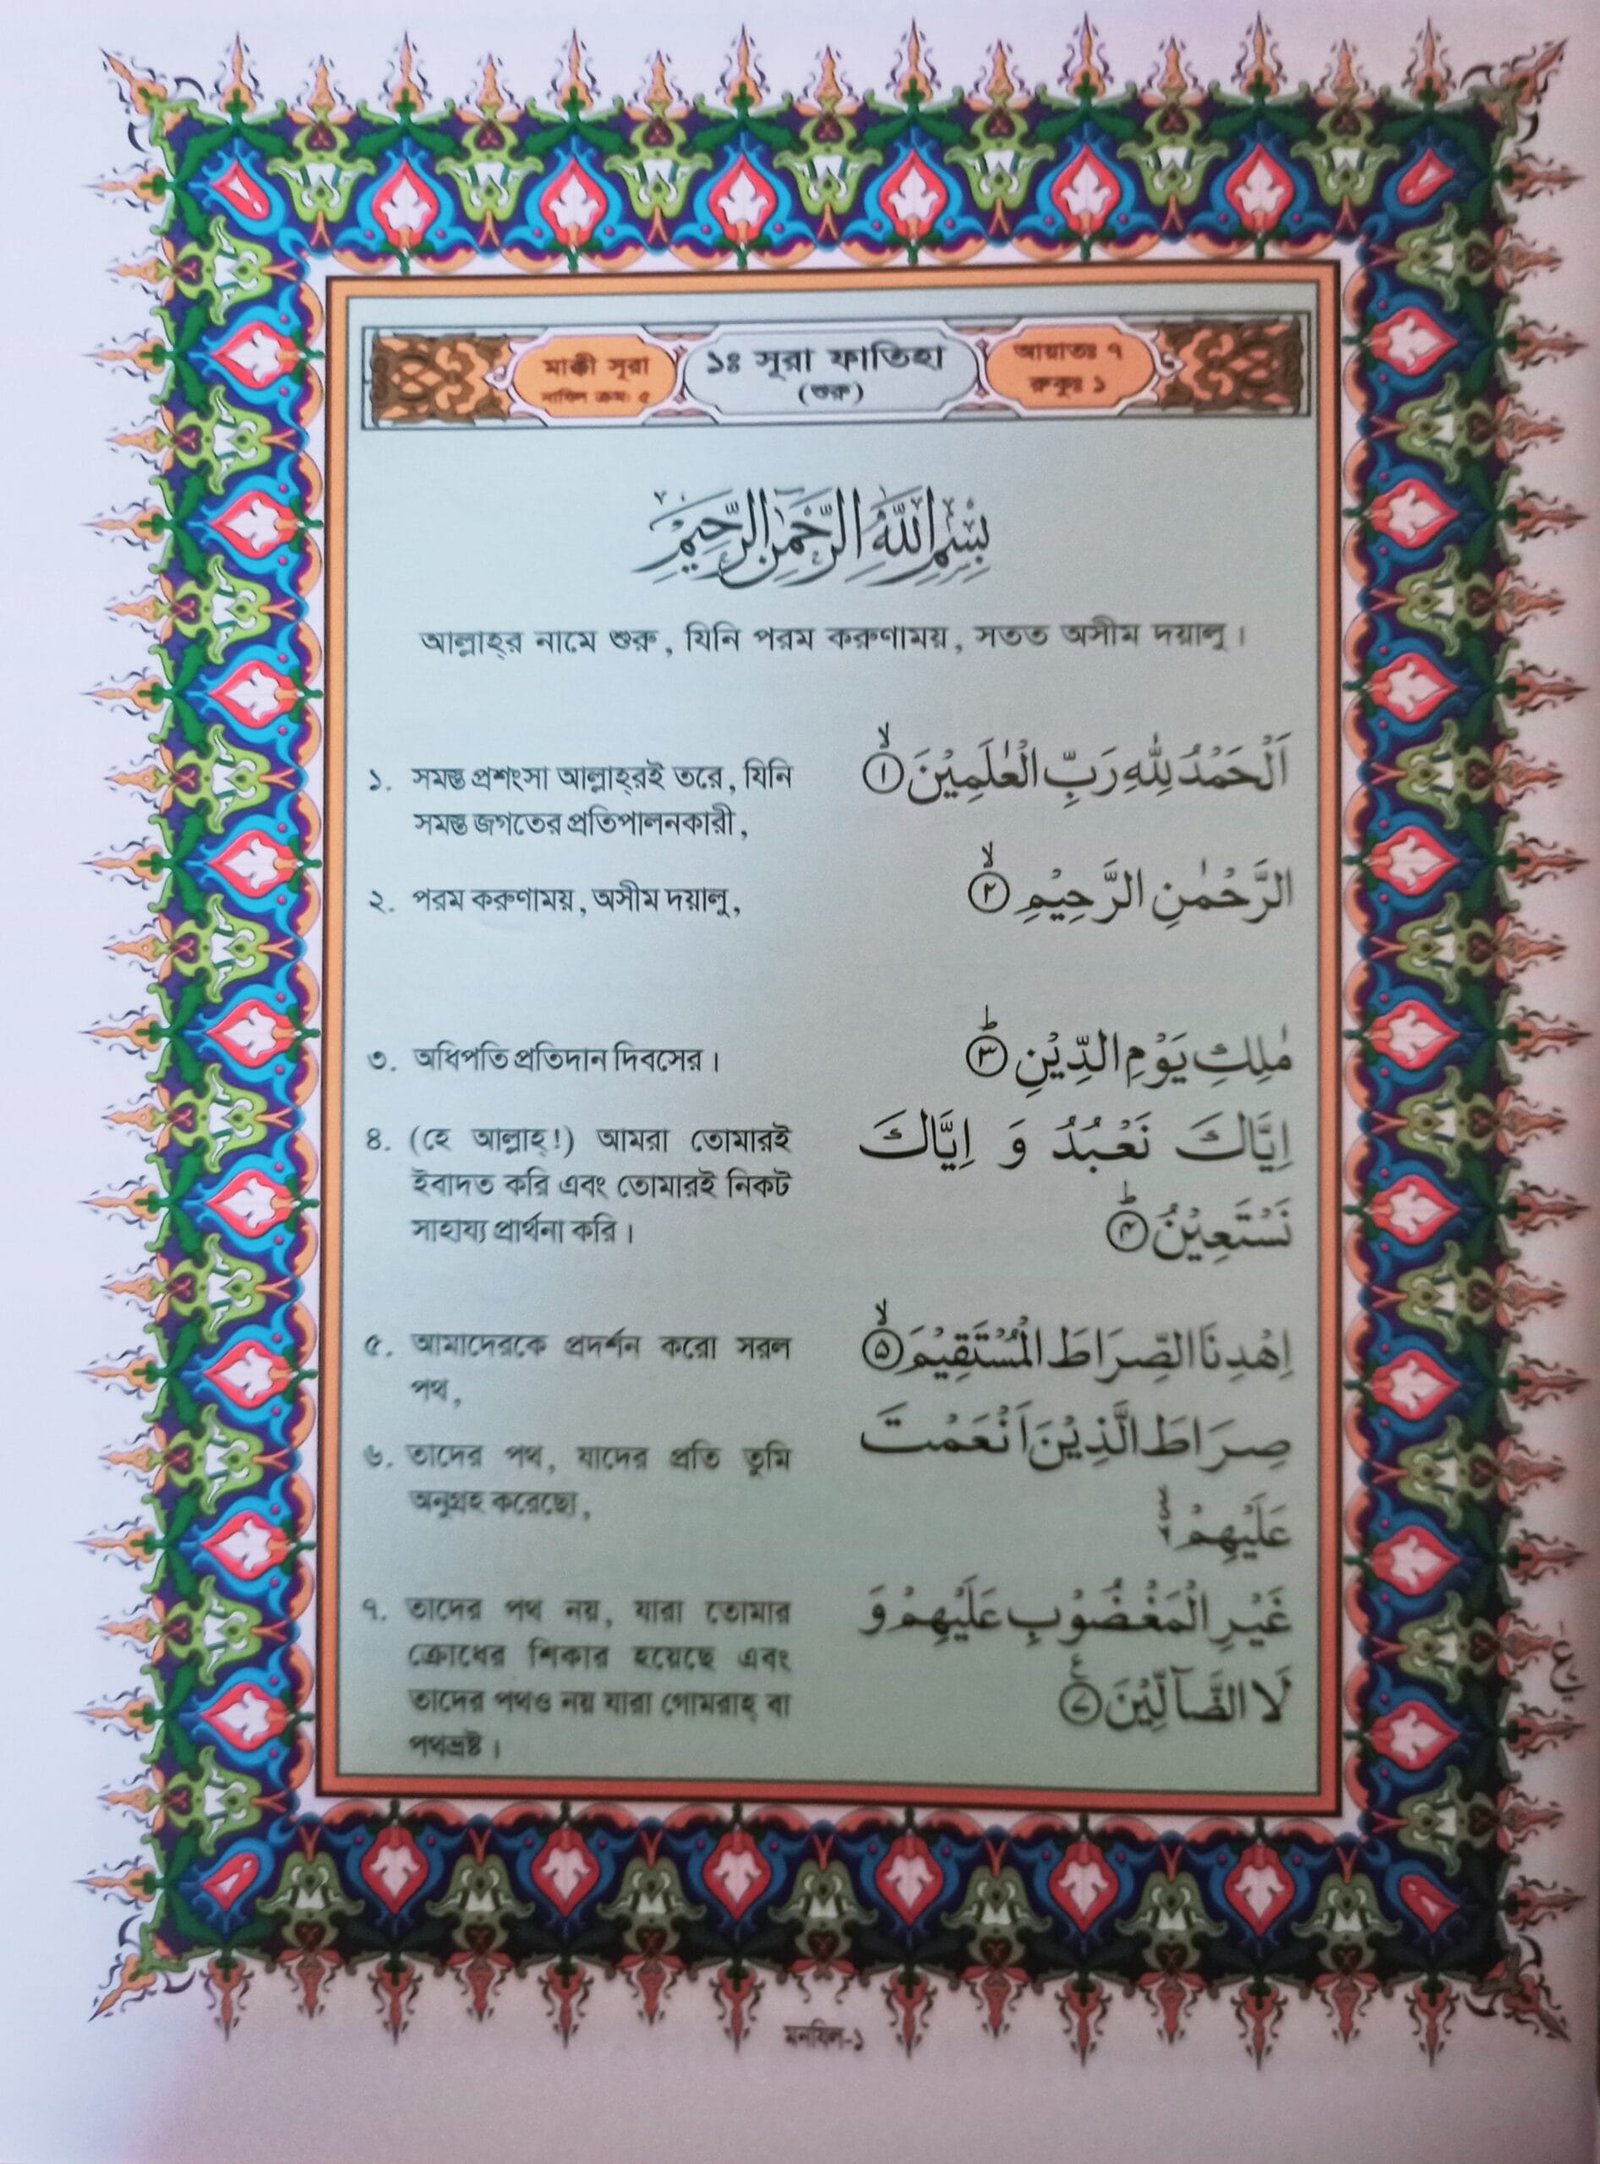 মাক্কী সূরা
নাযিল ক্রম: ৫
১ঃ সূরা ফাতিহা
(শুরু)
আয়াতঃ ৭
রুকূঃ ১
بِسْمِ اللّٰهِ الرَّحْمٰنِ الرَّحِيْمِ
আল্লাহ্‌র নামে শুরু, যিনি পরম করুণাময়, সতত অসীম দয়ালু।
১. সমস্ত প্রশংসা আল্লাহ্‌রই তরে, যিনি
সমস্ত জগতের প্রতিপালনকারী,
اَلْحَمْدُ لِلّٰهِ رَبِّ الْعٰلَمِيْنَ ۙ﴿١﴾
২. পরম করুণাময়, অসীম দয়ালু,
الرَّحْمٰنِ الرَّحِيْمِ ۙ﴿٢﴾
৩. অধিপতি প্রতিদান দিবসের।
مٰلِكِ يَوْمِ الدِّيْنِ ؕ﴿٣﴾
৪. (হে আল্লাহ্!) আমরা তোমারই
ইবাদত করি এবং তোমারই নিকট
সাহায্য প্রার্থনা করি।
اِيَّاكَ نَعْبُدُ وَ اِيَّاكَ
نَسْتَعِيْنُ ؕ﴿٤﴾
৫. আমাদেরকে প্রদর্শন করো সরল
পথ,
اِهْدِنَا الصِّرَاطَ الْمُسْتَقِيْمَ ۙ﴿٥﴾
৬. তাদের পথ, যাদের প্রতি তুমি
অনুগ্রহ করেছো,
صِرَاطَ الَّذِيْنَ اَنْعَمْتَ
عَلَيْهِمْ
৭. তাদের পথ নয়, যারা তোমার
ক্রোধের শিকার হয়েছে এবং
তাদের পথও নয় যারা গোমরাহ্ বা
পথভ্রষ্ট।
غَيْرِ الْمَغْضُوْبِ عَلَيْهِمْ وَ
لَا الضَّآلِّيْنَ ﴿٧﴾
ع
মনযিল-১